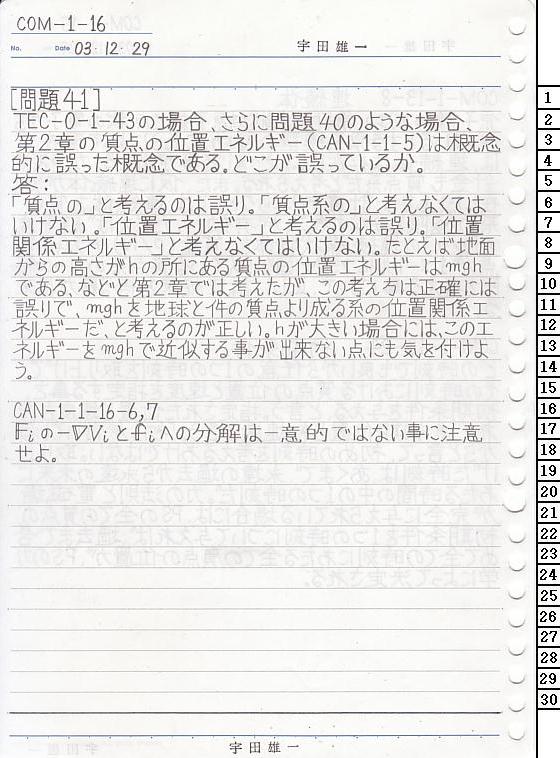 COM-1-16
No.
Date 03・12・29
宇田雄一
[問題41]
TEC-0-1-43の場合、さらに問題40のような場合、
第2章の質点の位置エネルギー(CAN-1-1-5)は概念
的に誤った概念である。どこが誤っているか。
答:
「質点の」と考えるのは誤り。「質点系の」と考えなくては
いけない。「位置エネルギー」と考えるのは誤り。「位置
関係エネルギー」と考えなくてはいけない。たとえば地面
からの高さがhの所にある質点の位置エネルギーはmgh
である、などと第2章では考えたが、この考え方は正確には
誤りで、mghを地球と件の質点より成る系の位置関係エ
ネルギーだ、と考えるのが正しい。hが大きい場合には、このエ
ネルギーをmghで近似する事が出来ない点にも気を付けよ
う。
CAN-1-1-16-6,7
𝔽iの-∇Viと𝕗iへの分解は一意的ではない事に注意
せよ。
宇田雄一
1
2
3
4
5
6
7
8
9
10
11
12
13
14
15
16
17
18
19
20
21
22
23
24
25
26
27
28
29
30